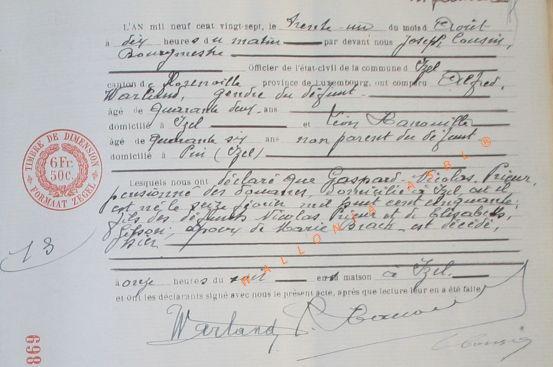 L'AN mil neuf cent vingt-sept, le trente un du mois d'Août
à dix heures du matin par devant nous Joseph Cousin,
Bourgmestre
Officier de l'état-civil de la commune d'Izel
canton de province de Luxembourg, ont comparu Alfred
Warland, gendre du défunt
âgé de quarante deux ans
domicilié à Izel et Léon
âgé de quarante six ans non parent du défunt
domicilié à Pin (Izel)
Lesquels nous ont déclaré que Gaspard-Nicolas Prieur,
pensionné des douanes, domicilié à Izel où il
est né le seize février mil huit cent cinquante,
fils des défunts Nicolas Prieur et de Elisabeth
époux de Marie est décédé,
hier
à onze heures du en sa maison à Izel.
et ont les déclarants signé avec nous le présent acte, après que lecture leur en a été faite
TIMBRE DE DIMENSION
6 Fr.
50c.
FORMAAT ZEGEL
13
869
WALLONIA ASBL ®
Warland